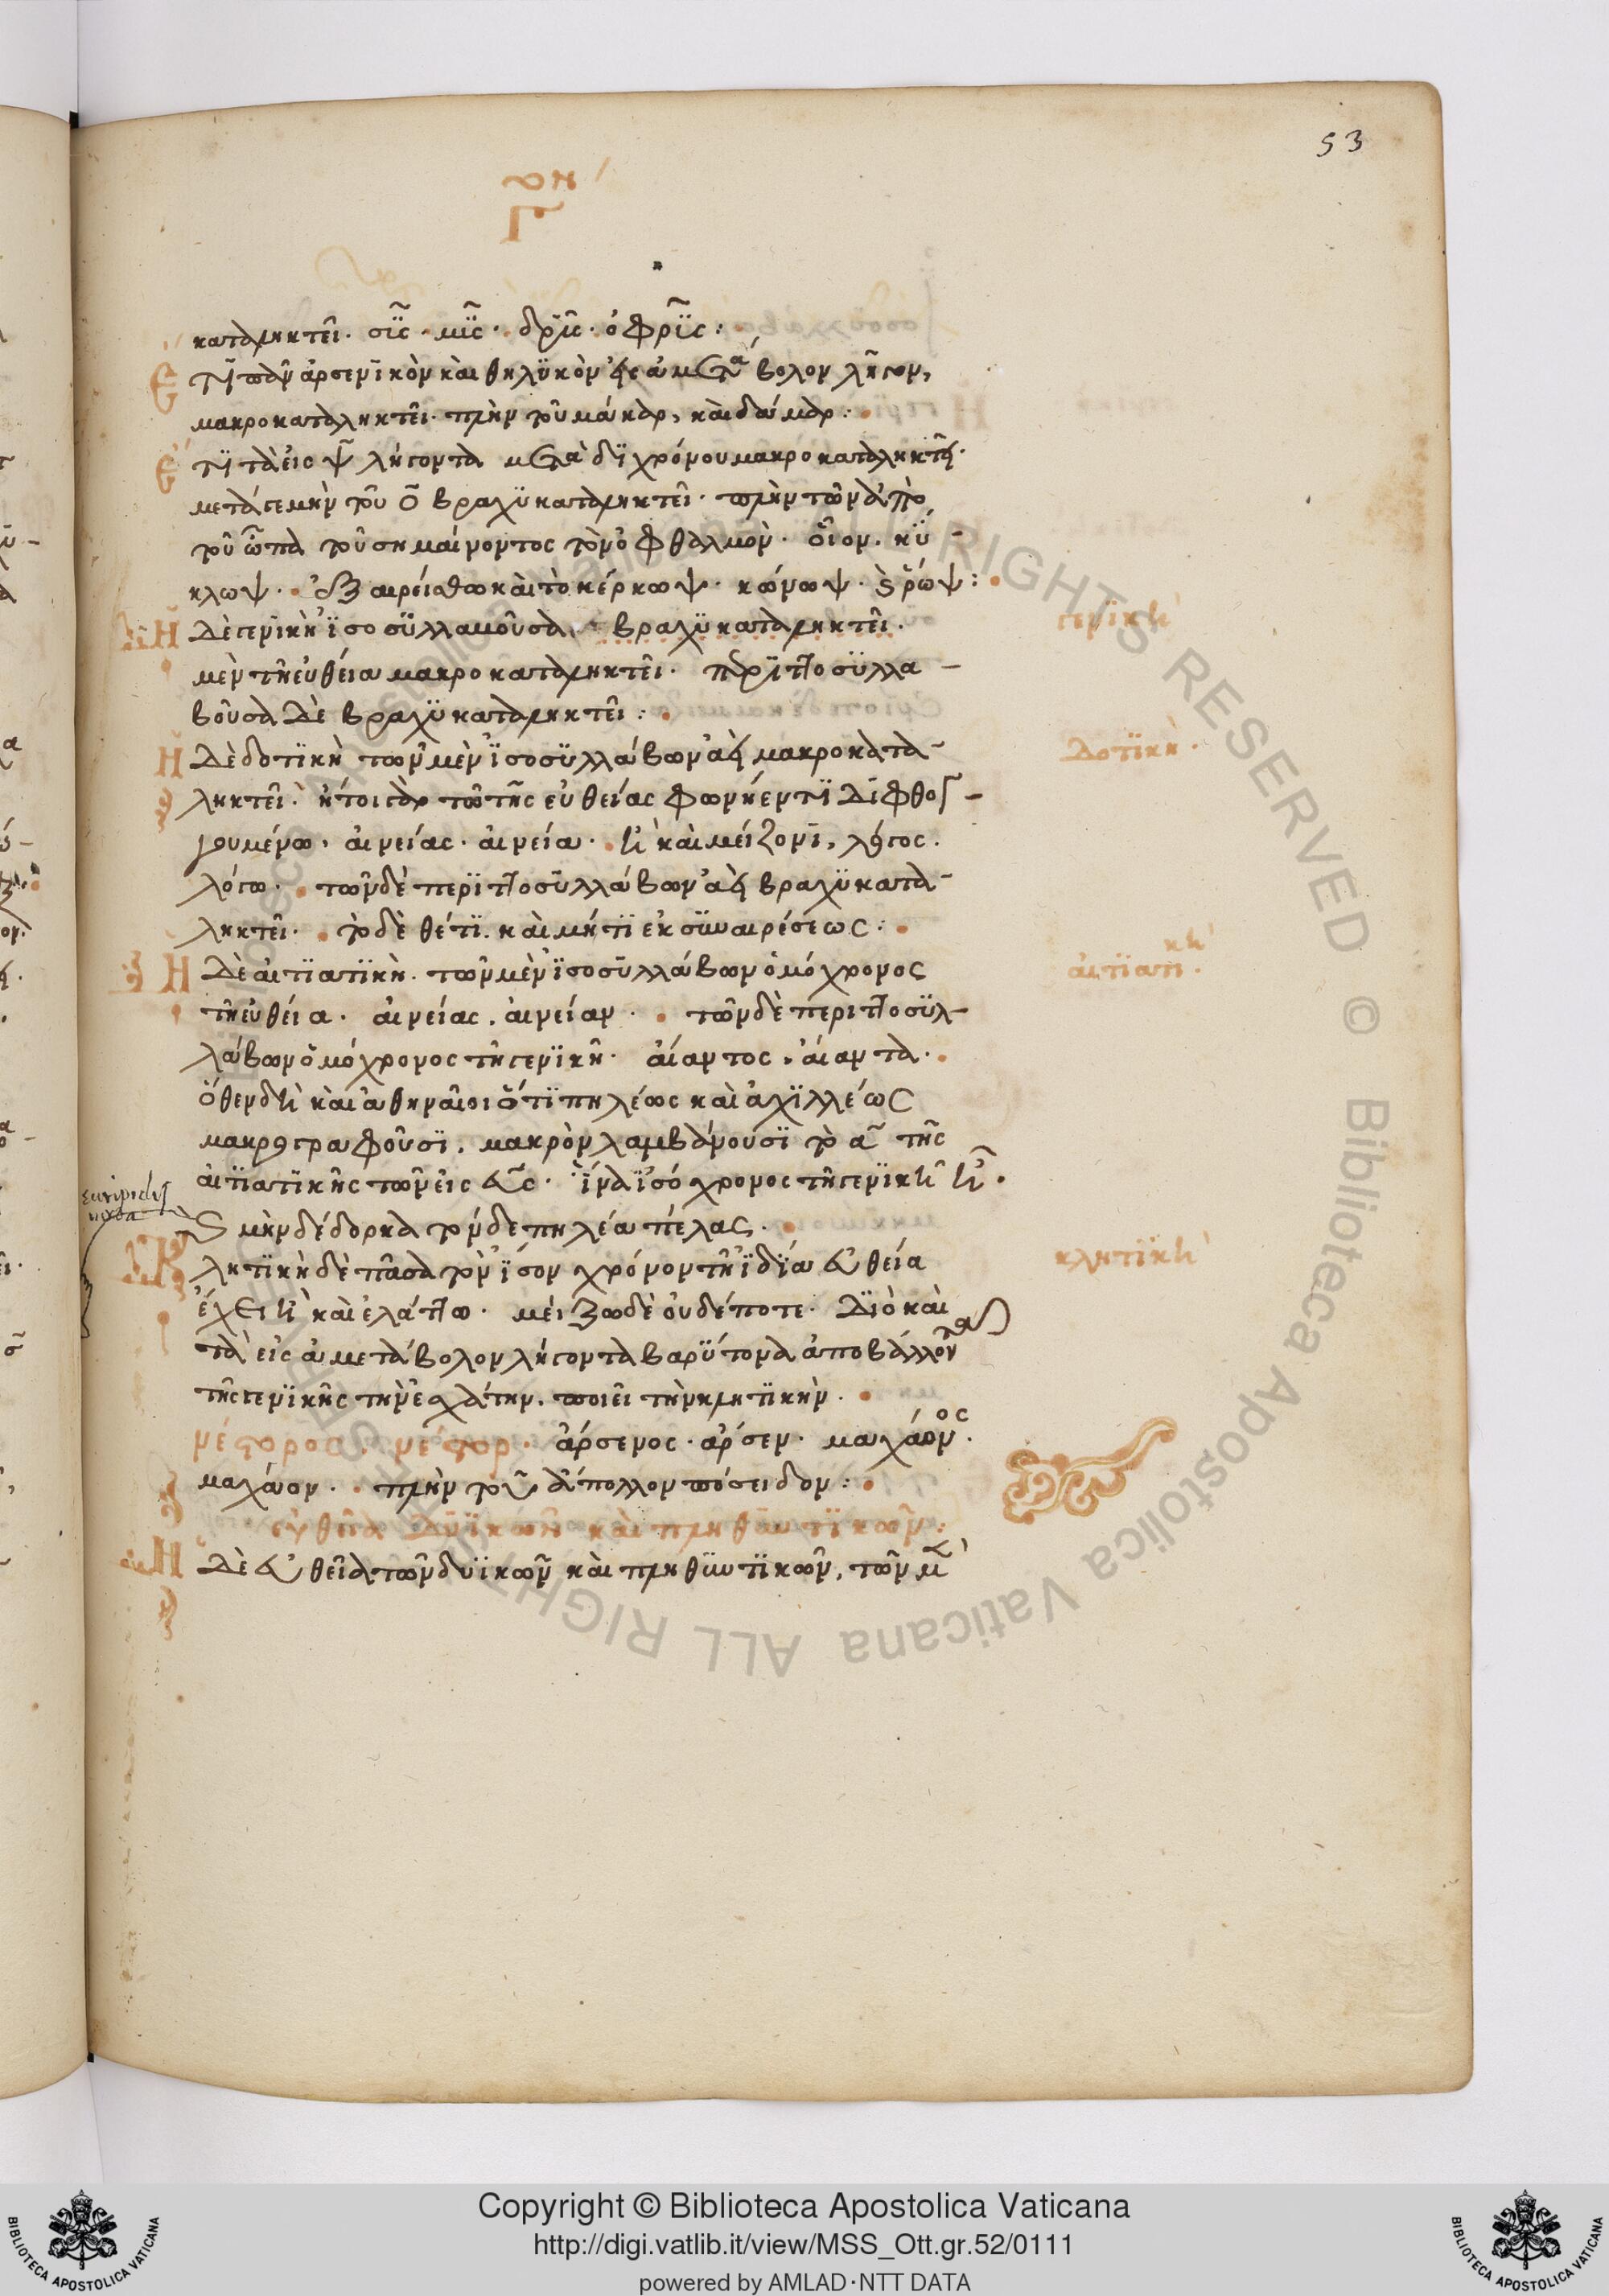 53
καταληκτεῖ. σῖς. μῖς. ὀφρῖς:
Ἔτι πᾶν ἀρσενικὸν καὶ θηλϋκὸν εἰς ἀμετάβολον λῆγον,
μακροκαταληκτεῖ. πλὴν τοῦ μάκαρ, καὶ δάμαρ:
Ἔτι τὰ εἰς ψ λήγοντα μετὰ διχρόνου μακροκαταληκτεῖ.
μετὰ γε μὴν τοῦ ο βραχϋκαταληκτεῖ. πλὴν τῶν ἀπὸ
τοῦ ὦπα τοῦ σημαίνοντος τὸν ὀφθαλμὸν. οἷον. κύ-
κλωψ. ἐξαιρείσθω καὶ τὸ κέρκωψ. κώνωψ. ρώψ:
Ἡ δὲ γενικὴ ἰσοσϋλλαβοῦσα βραχϋκαταληκτεῖ.
μὲν τῆ ευθεία μακροκαταληκτεῖ. περιττοσϋλλα-
βοῦσα δὲ βραχϋκαταληκτεῖ:
γενικὴ
Ἡ δὲ δοτικὴ τῶν μὲν ἰσοσϋλλάβων ἀεὶ μακροκατα-
ληκτεῖ. ἤτοι γὰρ τῶ τῆς εὐθείας φωνήεντι διφθογ-
γουμένω. αἰνείας. αἰνεία. ἢ καὶ μείζονι, λόγος.
λόγω. τῶν δὲ περιττοσϋλλάβων ἀεὶ βραχϋκατα-
ληκτεῖ. τὸ δὲ θέτι. καὶ μήτι ἐκ σϋναιρέσεως:
δοτικὴ.
Ἡ δὲ αἰτιατικὴ. τῶν μὲν ἰσοσϋλλάβων ὁμόχρονος
τῆ ευθεία. αἰνείας. αἰνείαν. τῶν δὲ περιττοσϋλ-
λάβων ὁμόχρονος τῆ γενικῆ. αἴαντος. αἴαντα.
αἰτιατικὴ.
ὅθεν δὴ καὶ ἀθηναῖοι ὅτι πηλέως καὶ ἀχιλλέως
μακρογραφοῦσι. μακρὸν λαμβάνουσι τὸ α τῆς
αἰτιατικῆς τῶν εἰς ευς. ἵνα ἰσόχρονος τῆ γενικῆ ἦ.
μὴν δέδορκα τόνδε πηλέα πέλας.
Κλητικὴ δὲ πᾶσα τὸν ἴσον χρόνον τῆ ἰδία ευθεία
ἔχει ἢ καὶ ἐλάττω. μείζω δὲ οὐδέποτε. διὸ καὶ
τὰ εἰς ἀμετάβολον λήγοντα βαρύτονα ἀποβάλλοντα
τῆς γενικῆς τὴν ἐσχάτην. ποιεῖ τὴν κλητικὴν.
κλητικὴ
νέστορος. νέστορ. ἄρσενος. ἄρσεν. μαχάονος.
μαχάον. πλὴν τοῦ ἄπολλον πόσειδον:
εὐθεῖα δυικῶν καὶ πληθυντικῶν:
Ἡ δὲ ευθεῖα τῶν δυικῶν καὶ πληθϋντικῶν, τῶν μὲ
Copyright © Biblioteca Apostolica Vaticana
http://digi.vatlib.it/view/MSS_Ott.gr.52/0111
powered by AMLAD·NTT DATA
BIBLIOTECA APOSTOLICA VATICANA
BIBLIOTECA APOSTOLICA VATICANA